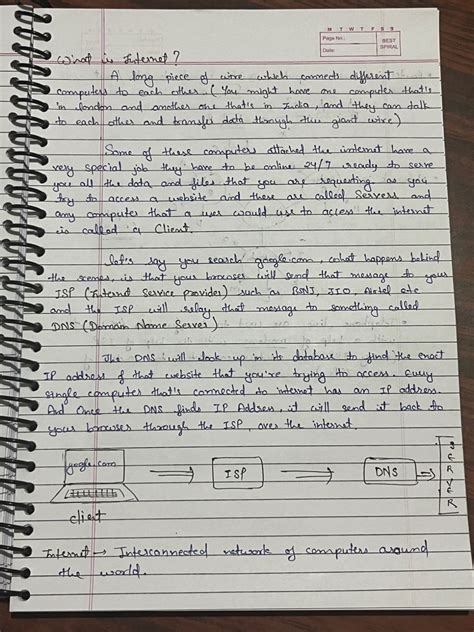 M T W T F S S
Page No.:
Date:
BEST
SPIRAL
What is Internet?
A long piece of wire which connects different
computers to each other. (You might have one computer that's
in london and another one that's in India, and they can talk
to each other and transfer data through this giant wire)
Some of these computers attached the internet have a
very special job they have to be online 24/7 ready to serve
you all the data and files that you are requesting as you
try to access a website and these are called Servers and
any computer that a user would use to access the internet
is called a Client.
let's say you search google.com, what happens behind
the scenes, is that your browser will send that message to your
ISP (Internet Service provider) such as BSNL, JIO, Airtel etc
and the ISP will relay that message to something called
DNS (Domain Name Server)
The DNS will look up in its database to find the exact
IP address of that website that you're trying to access. every
single computer that's connected to internet has an IP address.
And Once the DNS finds IP Address, it will send it back to
your browser through the ISP, over the internet.
google.com
ISP
DNS
SERVER
client
Internet → Interconnected network of computers around
the world.